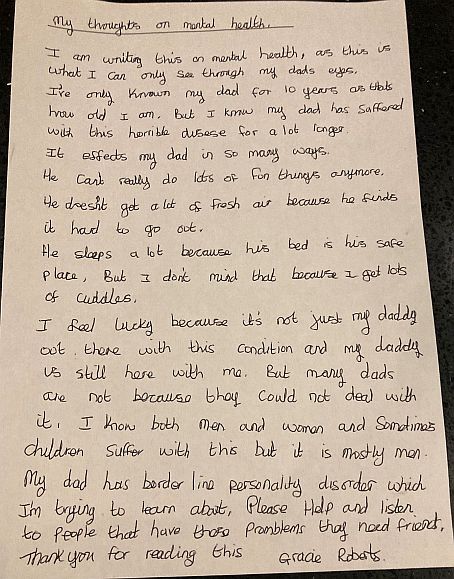 My thoughts on mental health.
I am writing this on mental health, as this is
what I can only see through my dads eyes.
I've only known my dad for 10 years as thats
how old I am. But I know my dad has suffered
with this horrible disese for a lot longer.
It effects my dad in so many ways.
He cant really do lots of fun things anymore.
He dresn't get a lot of fresh air because he finds
it hard to go out.
He sleeps a lot because his bed is his safe
place, But I don't mind that because I get lots
of cuddles.
I feel lucky because it's not just my daddy
out there with this condition and my daddy
is still here with me. But many dads
are not because they could not deal with
it. I know both men and women and Sometimes
children suffer with this but it is mostly men.
My dad has border line personality disorder which
I'm trying to learn about, Please Help and listen
to people that have those problems they need friend,
Thank you for reading this Gracie Roberts.